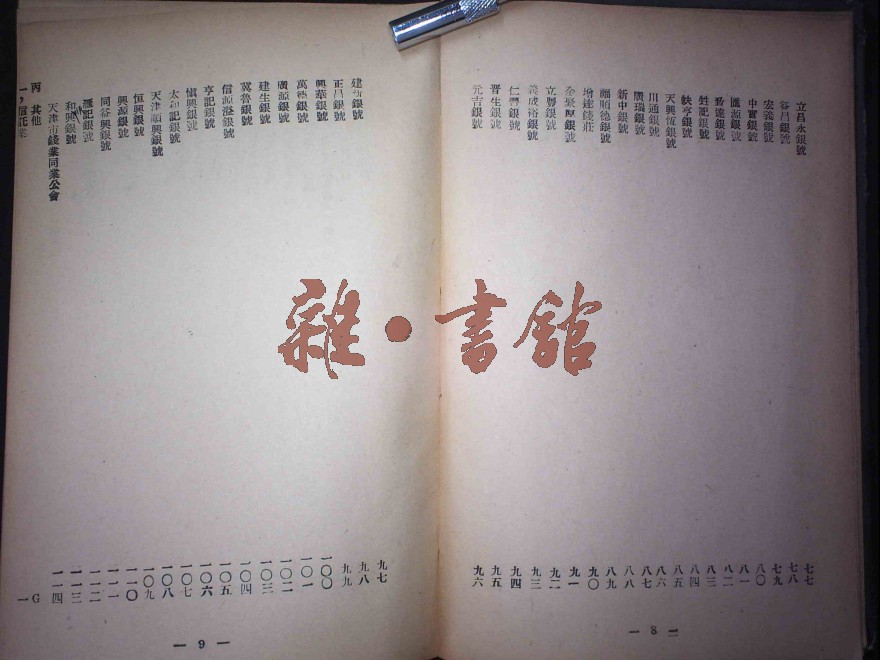 立昌永銀號 七七
谷昌銀號 七八
宏義銀號 七九
中實銀號 八〇
匯源銀號 八一
致達銀號 八二
銀號 八三
餘亨銀號 八四
天興恆銀號 八五
川通銀號 八六
廣瑞銀號 八七
新中銀號 八八
頤順德銀號 八九
增達錢莊 九〇
全聚厚銀號 九一
立豐銀號 九二
義成裕銀號 九三
仁豐銀號 九四
晋生銀號 九五
元吉銀號 九六
— 8 —
建新銀號 九七
正昌銀號 九八
興華銀號 九九
萬銀號 一〇〇
廣源銀號 一〇一
建生銀號 一〇二
冀魯銀號 一〇三
信源溢銀號 一〇四
亨記銀號 一〇五
愼興銀號 一〇六
太和記銀號 一〇七
天津順興銀號 一〇八
恒興銀號 一〇九
興源銀號 一一〇
同谷興銀號 一一一
匯記銀號 一一二
和興銀號 一一三
天津市錢業同業公會 一一四
丙 其他 G
一,信託業 一
— 9 —
雜·書館